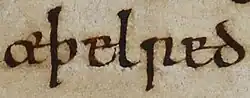 æþelred